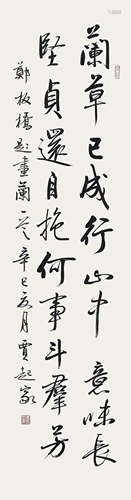 蘭草已成行山中意味長
堅貞還自抱何事斗羣芳
鄭板橋題畫蘭之一 辛巳亥月賈起家